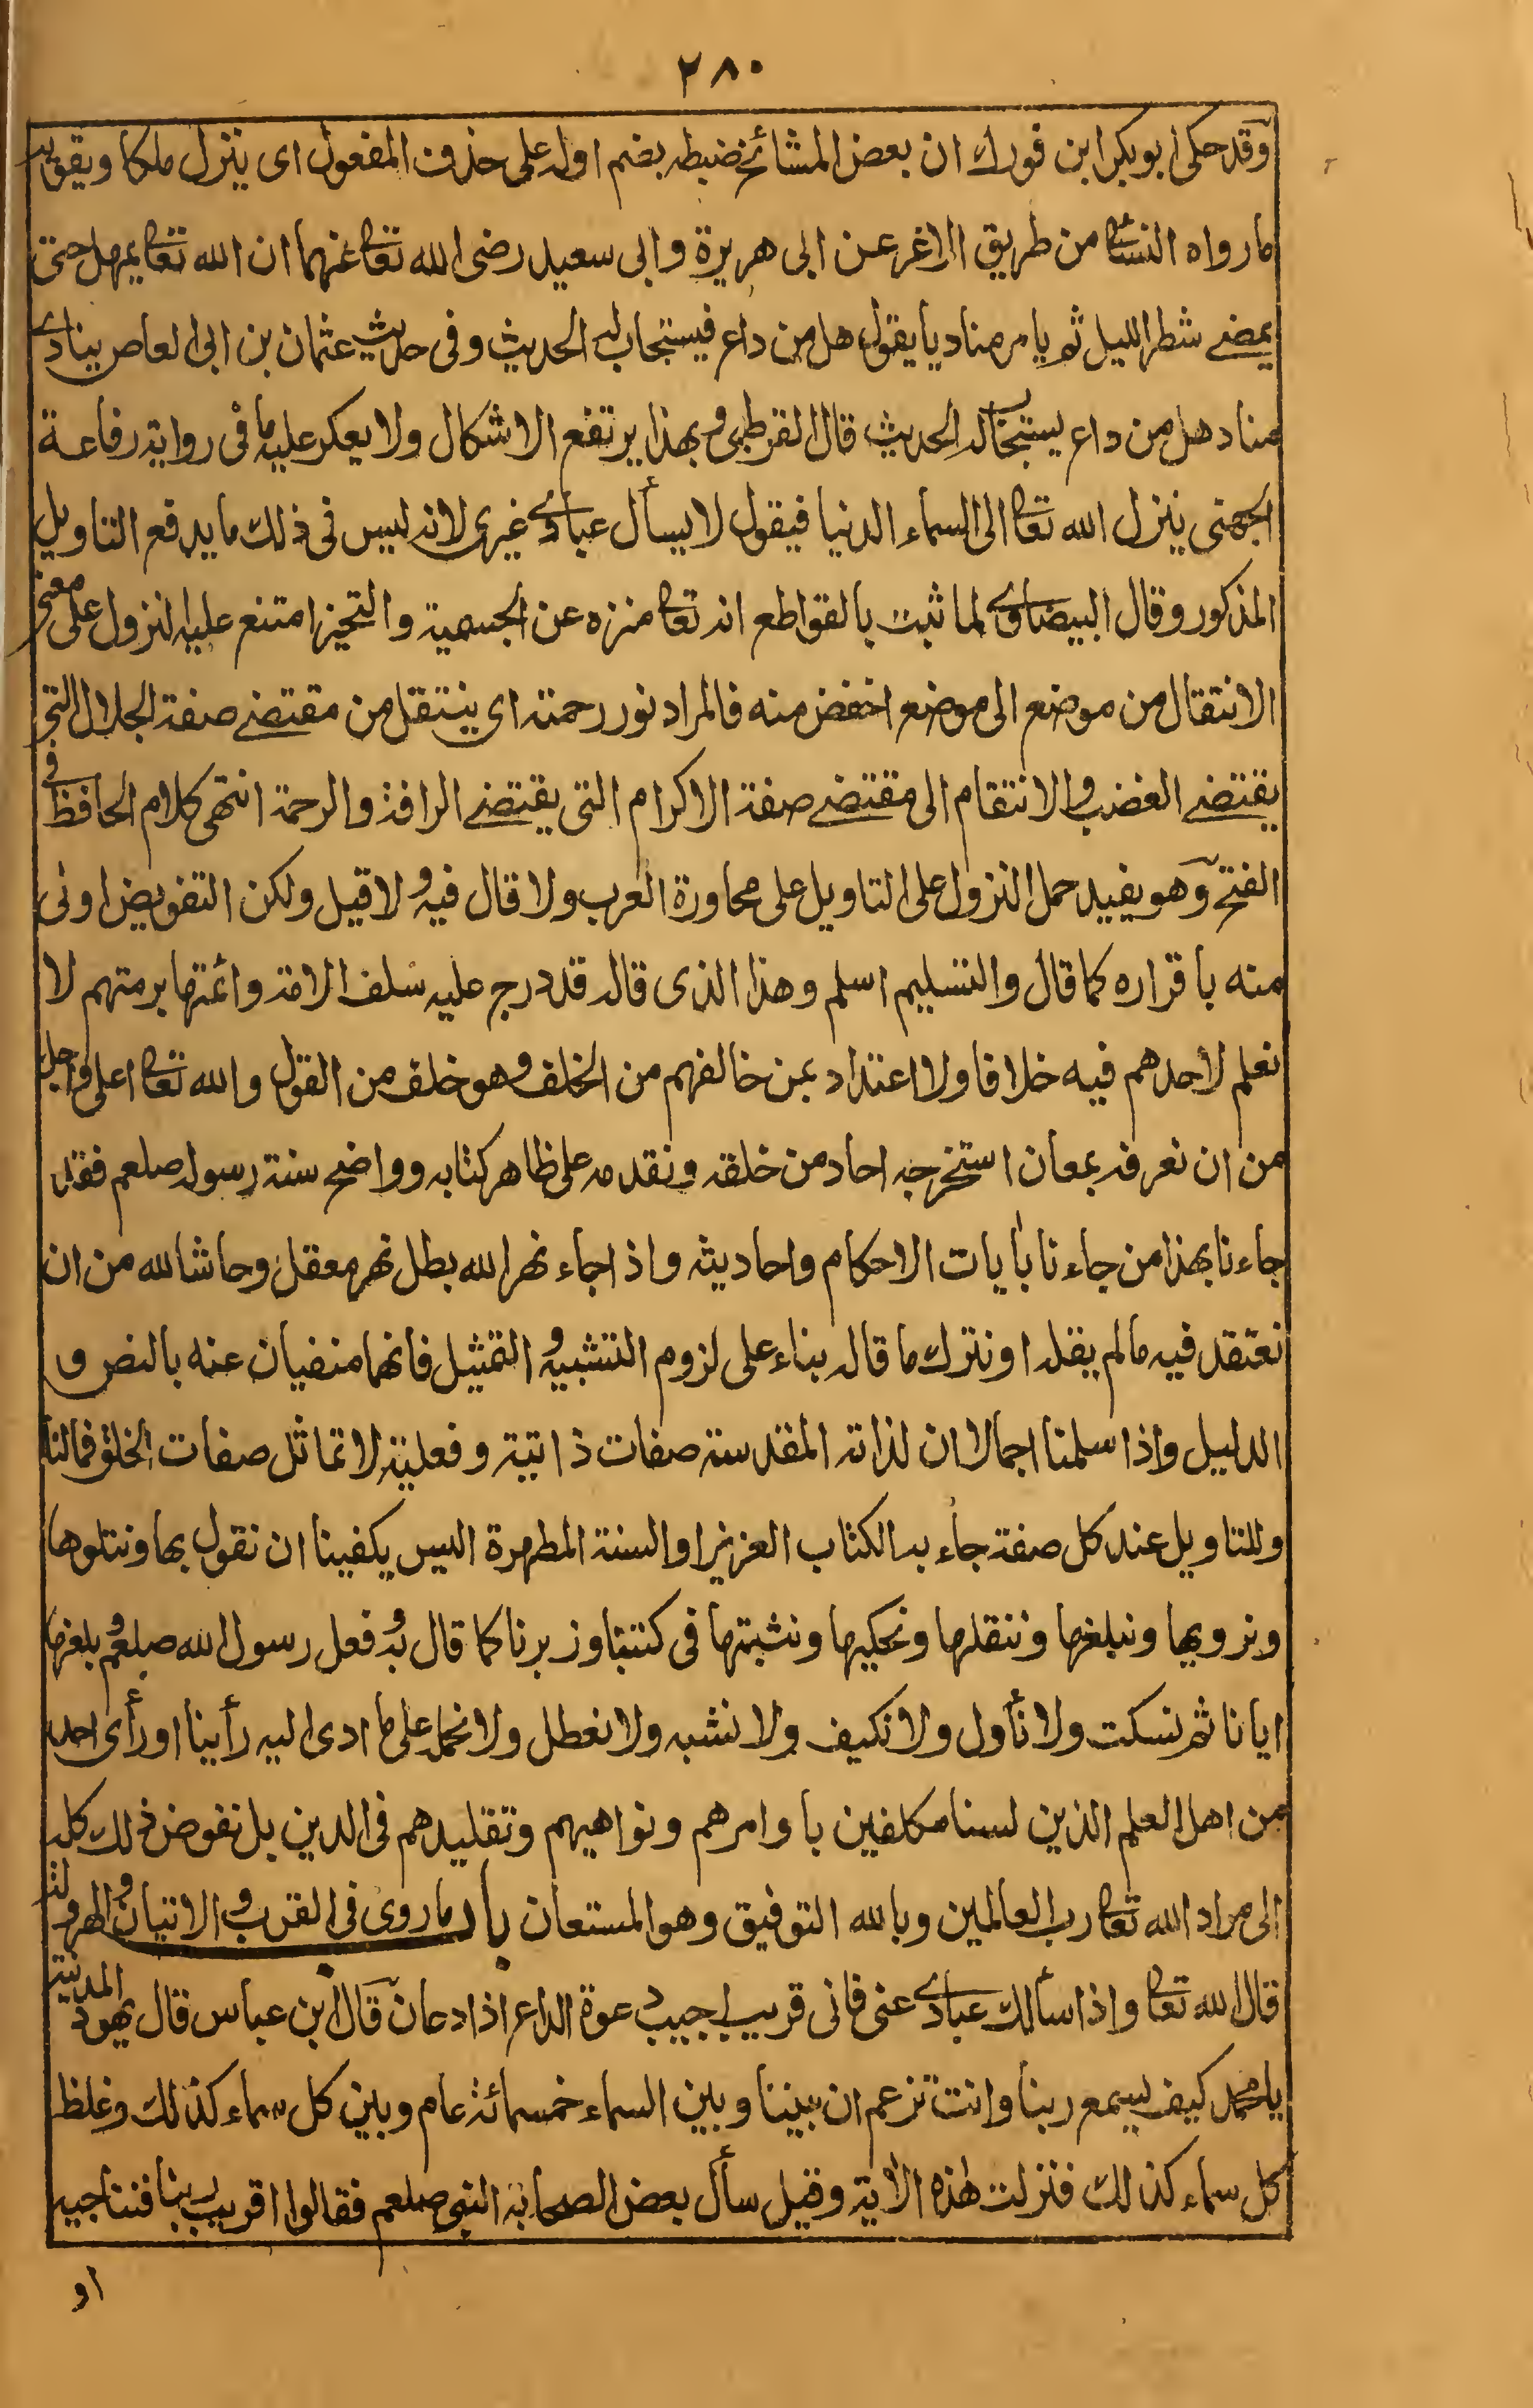 ٢٨٠
وقد حكى ابو بكر ابن فورك ان بعض المشائخ ضبطه بضم اوله على حذف المفعول اى ينزل ملكا ويقويه
ما رواه النسائى من طريق الاغر عن ابى هريرة وابى سعيد رضى الله تعالى عنهما ان الله تعالى يمهل حتى
يمضے شطر الليل ثم يامر مناديا يقول هل من داع فيستجاب له الحديث وفى حديث عثمان بن ابى العاص ينادے
مناد هل من داع يستجاب له الحديث قال القرطبى وبهذا يرتفع الاشكال ولا يعكر عليه ما فى رواية رفاعة
الجهنى ينزل الله تعالى الى السماء الدنيا فيقول لا يسأل عبادے غيرى لانه ليس فى ذلك ما يدفع التاويل
المذكور وقال البيضاوے لما ثبت بالقواطع انه تعالى منزه عن الجسمية والتحيز امتنع عليه النزول على معنى
الانتقال من موضع الى موضع اخفض منه فالمراد نور رحمته اى ينتقل من مقتضے صفة الجلال التى
يقتضے الغضب والانتقام الى مقتضے صفة الاكرام التى يقتضے الرافة والرحمة انتهى كلام الحافظ فى
الفتح وهو يفيد حمل النزول على التاويل على محاورة العرب ولا قال فيه ولا قيل ولكن التفويض اولى
منه باقراره كما قال والتسليم اسلم وهذا الذى قاله قد درج عليه سلف الامة وائمتها برمتهم لا
نعلم لاحدهم فيه خلافا ولا اعتداد بمن خالفهم من الخلف وهو خلف من القول والله تعالى اعلى واجل
من ان نعرفه بمعان استخرجه احاد من خلقه ونقدمه على ظاهر كتابه وواضح سنة رسوله صلعم فقد
جاءنا بهذا من جاءنا بأيات الاحكام واحاديثه واذا جاء نهر الله بطل نهر معقل وحاشا لله من ان
نعتقد فيه ما لم يقله او نترك ما قاله بناء على لزوم التشبيه والتمثيل فانهما منفيان عنه بالنص و
الدليل واذا سلمنا اجمالا ان لذاته المقدسة صفات ذاتية وفعلية لا تماثل صفات الخلق فمالنا
وللتاويل عند كل صفة جاء به الكتاب العزيز او السنة المطهرة اليس يكفينا ان نقول بها ونتلوها
ونرويها ونبلغها وننقلها ونحكيها ونثبتها فى كتبنا وزبرنا كما قال به وفعل رسول الله صلعم وبلغها
ايانا ثم نسكت ولا نأول ولا نكيف ولا نشبه ولا نعطل ولا نحمل على ما ادى اليه رأينا او رأى احد
من اهل العلم الذين لسنا مكلفين باوامرهم ونواهيهم وتقليدهم فى الدين بل نفوض ذلك كله
الى مراد الله تعالى رب العالمين وبالله التوفيق وهو المستعان باب ما روى فى القرب والاتيان والهرولة
قال الله تعالى واذا سألك عبادے عنى فانى قريب اجيب دعوة الداع اذا دعان قال ابن عباس قال يهود المدينة
يا محمد كيف يسمع ربنا وانت تزعم ان بيننا وبين السماء خمسمائة عام وبين كل سماء كذلك وغلظ
كل سماء كذلك فنزلت هذه الاية وقيل سأل بعض الصحابة النبى صلعم فقالوا اقريب ربنا فنناجيه
او